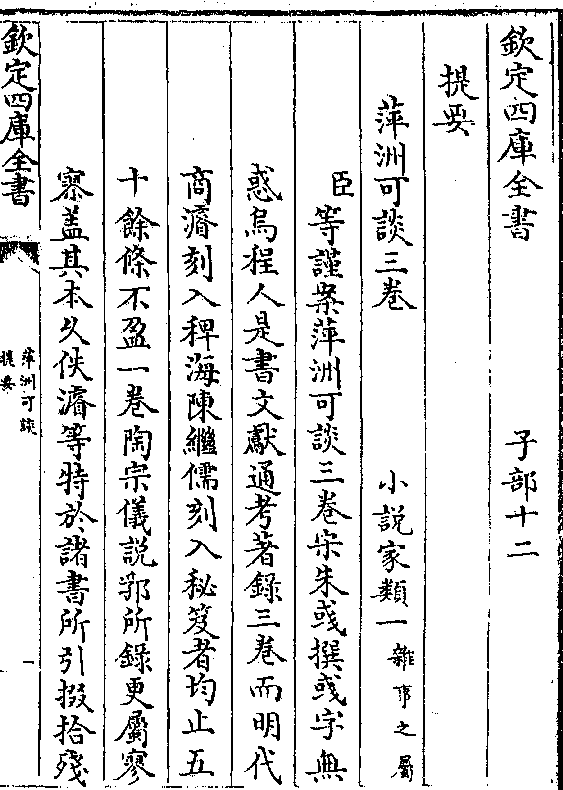 欽定四庫全書　　　　子部十二
提要
萍洲可談三卷　　　　小説家類一雜事之屬
臣等謹案萍洲可談三卷宋朱彧撰彧字無
惑烏程人是書文獻通考著錄三卷而明代
商濬刻入稗海陳繼儒刻入秘笈者均止五
十餘條不盈一卷陶宗儀説郛所錄更屬寥
寥蓋其本久佚濬等特於諸書所引掇拾殘
欽定四庫全書
萍洲可談
提要
一